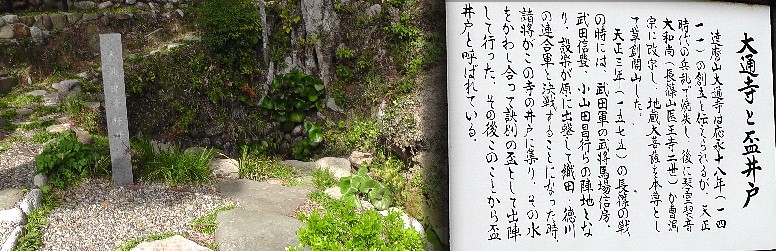 大通寺と盃井戸
達磨山大通寺は応永十八年（一四
一一）の創立と伝えられるが、天正
時代の兵乱で焼失し、後に琴室契音
大和尚（長篠山医王寺二世）が曹洞
宗に改宗し、地蔵大菩薩を本尊とし
て草創開山した。
天正三年（一五七五）の長篠の戦
の時には、武田軍の武将馬場信房、
武田信豊、小山田昌行らの陣地とな
り、設楽が原に出撃して織田・徳川
の連合軍と決戦することになった時、
諸将がこの寺の井戸に集り、その水
をかわし合って訣別の盃として出陣
して行った、その後このことから盃
井戸と呼ばれている。